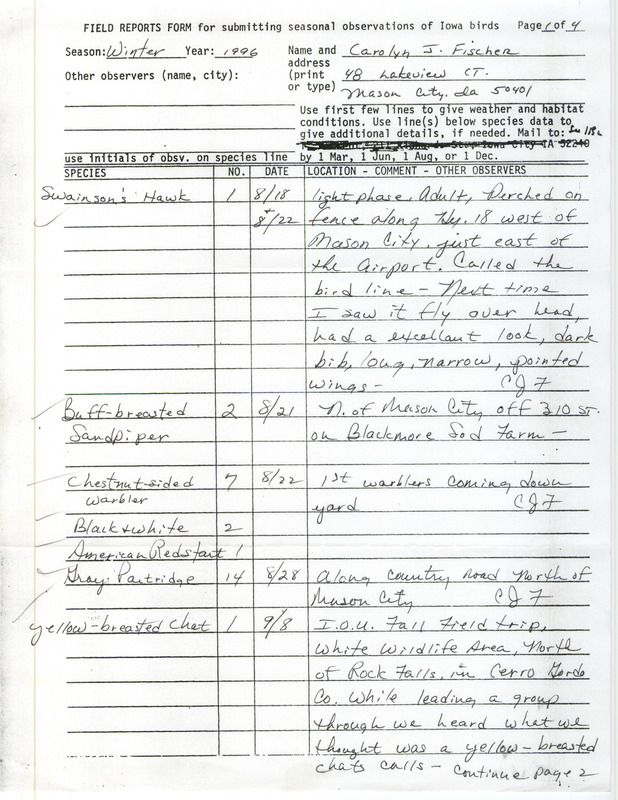 FIELD REPORTS FORM for submitting seasonal observations of Iowa birds Page 1 of 4
Season: Winter Year: 1996 Name and Carolyn J. Fischer
address
Other observers (name, city): (print 48 Lakeview CT.
or type) Mason City, Ia 50401
Use first few lines to give weather and habitat
conditions. Use line(s) below species data to
give additional details, if needed. Mail to:
Iowa City IA 52240
use initials of obsv. on species line by 1 Mar, 1 Jun, 1 Aug, or 1 Dec.
SPECIES NO. DATE LOCATION - COMMENT - OTHER OBSERVERS
Swainson's Hawk 1 8/18 light phase, Adult, Perched on
+ 8/22 fence along Hy. 18 west of
Mason City, just east of
the Airport. Called the
bird line - Next time
I saw it fly over head,
had a excellant look, dark
bib, long, narrow, pointed
wings - CJF
Buff-breasted 2 8/21 N. of Mason City off 310 ST.
Sandpiper on Blackmore Sod Farm -
Chestnut-sided 7 8/22 1st warblers coming down
warbler yard CJF
Black & white 2
American Redstart 1
Gray Partridge 14 8/28 Along country road North of
Mason City CJF
Yellow-breasted Chat 1 9/8 I.O.U. Fall Field trip,
White Wildlife Area, North
of Rock Falls, in Cerro Gordo
Co. While leading a group
through we heard what we
thought was a yellow-breasted
chats calls - continue page 2